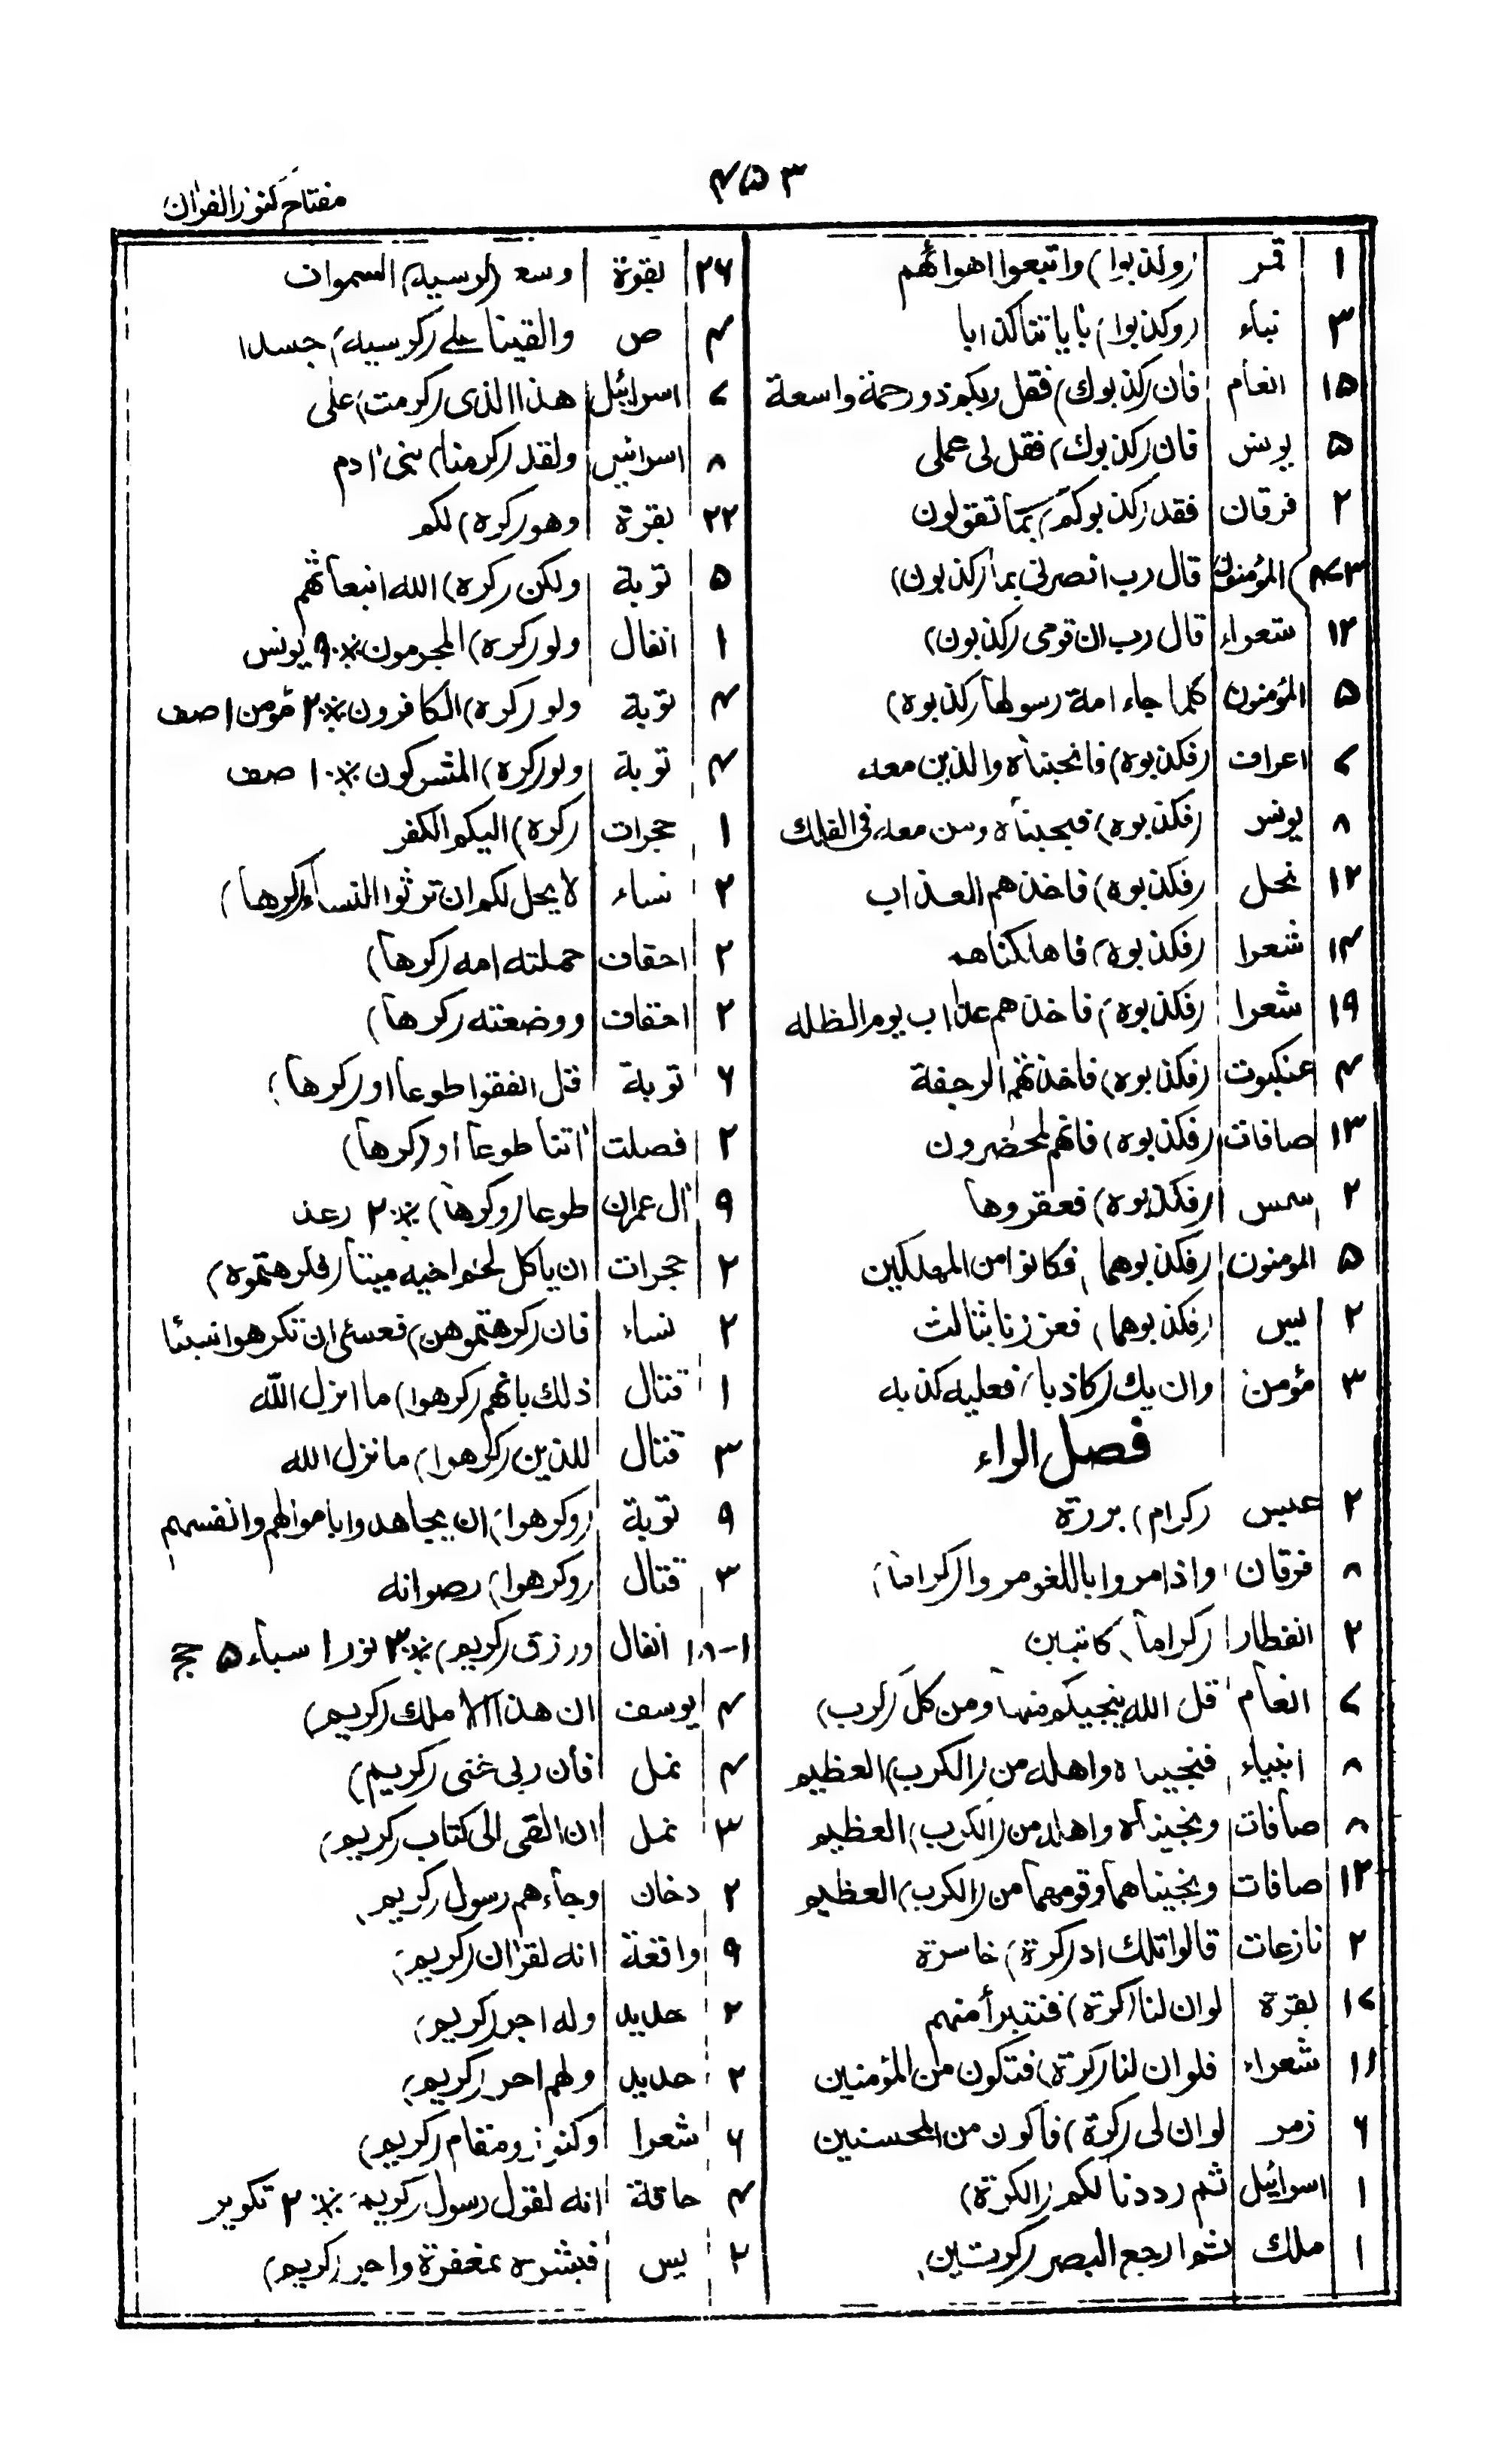 ۴۵۳
مفتاح كنوز القران
۱ قمر (وكذبوا) واتبعوا اهوائهم
۳ نباء (وكذبوا) باياتنا كذابا
۱۵ انعام فان (كذبوك) فقل ربكم ذو رحمة واسعة
۵ يونس فان (كذبوك) فقل لى عملى
۲ فرقان فقد (كذبوكم) بما تقولون
۳-۴ المؤمنون قال رب انصرنى بما (كذبون)
۱۲ شعراء قال رب ان قومى (كذبون)
۵ المؤمنون كلما جاء امة رسولها (كذبوه)
۷ اعراف (فكذبوه) فانجيناه والذين معه
۸ يونس (فكذبوه) فنجيناه ومن معه فى الفلك
۱۲ نحل (فكذبوه) فاخذهم العذاب
۱۴ شعرا (فكذبوه) فاهلكناهم
۱۹ شعرا (فكذبوه) فاخذهم عذاب يوم الظله
۴ عنكبوت (فكذبوه) فاخذتهم الرجفة
۱۳ صافات (فكذبوه) فانهم لمحضرون
۲ شمس (فكذبوه) فعقروها
۵ المومنون (فكذبوهما) فكانوا من المهلكين
۲ يس (فكذبوهما) فعززنا بثالث
۳ مؤمن وان يك (كاذبا) فعليه كذبه
فصل الراء
۲ عبس (كرام) بررة
۸ فرقان واذا مروا باللغو مروا (كراما)
۲ انفطار (كراما) كاتبين
۷ انعام قل الله ينجيكم منها ومن كل (كرب)
۸ انبياء فنجيناه واهله من (الكرب) العظيم
۸ صافات ونجيناه واهله من (الكرب) العظيم
۱۲ صافات ونجيناهما وقومهما من (الكرب) العظيم
۲ نازعات قالوا تلك اذ (كرة) خاسرة
۱۷ بقرة لو ان لنا (كرة) فنتبرأ منهم
۱۱ شعراء فلو ان لنا (كرة) فتكون من المؤمنين
۶ زمر لو ان لى (كرة) فاكون من المحسنين
۱ اسرائيل ثم رددنا لكم (الكرة)
۱ ملك ثم ارجع البصر (كرتين)
۲۶ بقرة وسع (كرسيه) السموات
۴ ص والقينا على (كرسيه) جسدا
۷ اسرائيل هذا الذى (كرمت) على
۸ اسرائيل ولقد (كرمنا) بنى ادم
۲۲ بقرة وهو (كره) لكم
۵ توبة ولكن (كره) الله انبعاثهم
۱ انفال ولو (كره) المجرمون ※ ۹ يونس
۴ توبة ولو (كره) الكافرون ※ ۲ مؤمن ۱ صف
۴ توبة ولو (كره) المشركون ※ ۱ صف
۱ حجرات (كره) اليكم الكفر
۲ نساء لا يحل لكم ان ترثوا النساء (كرها)
۲ احقاف حملته امه (كرها)
۲ احقاف ووضعته (كرها)
۶ توبة قل انفقوا طوعا او (كرها)
۲ فصلت اتنا طوعا او (كرها)
۹ ال عمران طوعا (وكرها) ※ ۲ رعد
۲ حجرات ان ياكل لحم اخيه ميتا (فكرهتموه)
۲ نساء فان (كرهتموهن) فعسى ان تكرهوا شيئا
۱ قتال ذلك بانهم (كرهوا) ما انزل الله
۳ قتال للذين (كرهوا) ما نزل الله
۹ توبة (وكرهوا) ان يجاهدوا باموالهم وانفسهم
۳ قتال (وكرهوا) رضوانه
۱-۱۰ انفال ورزق (كريم) ※ ۳ نور ۱ سباء ۵ حج
۴ يوسف ان هذا الا ملك (كريم)
۴ نمل فان ربى غنى (كريم)
۳ نمل ان القى الى كتاب (كريم)
۲ دخان وجاءهم رسول (كريم)
۹ واقعة انه لقران (كريم)
۲ حديد وله اجر (كريم)
۲ حديد ولهم اجر (كريم)
۶ شعرا وكنوز ومقام (كريم)
۴ حاقة انه لقول رسول (كريم) ※ ۲ تكوير
۲ يس فبشره بمغفرة واجر (كريم)